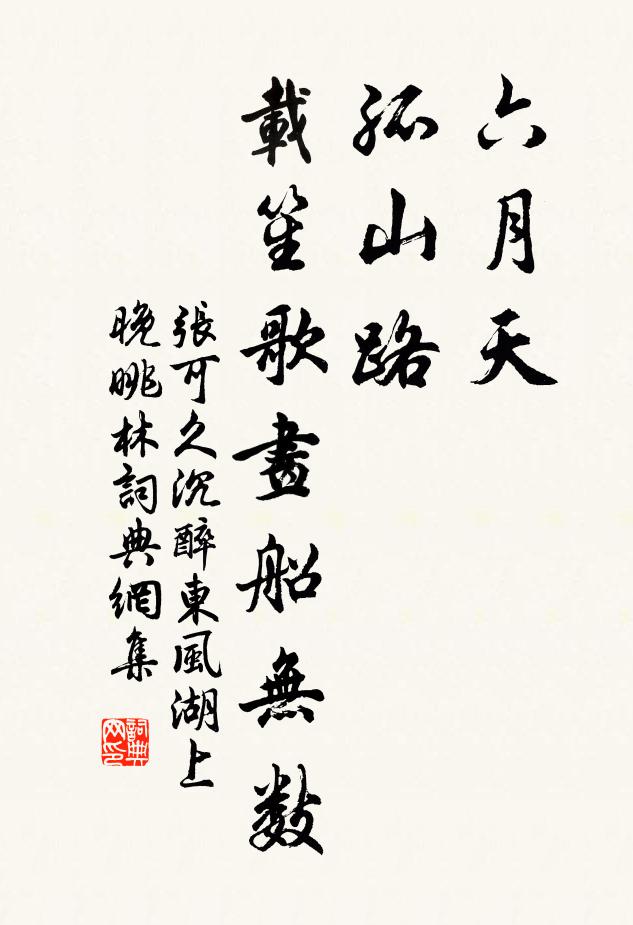 六月天
孤山路
載笙歌畫船無数
張可久沉醉東風湖上
晚眺林詞典網集
詞典網印